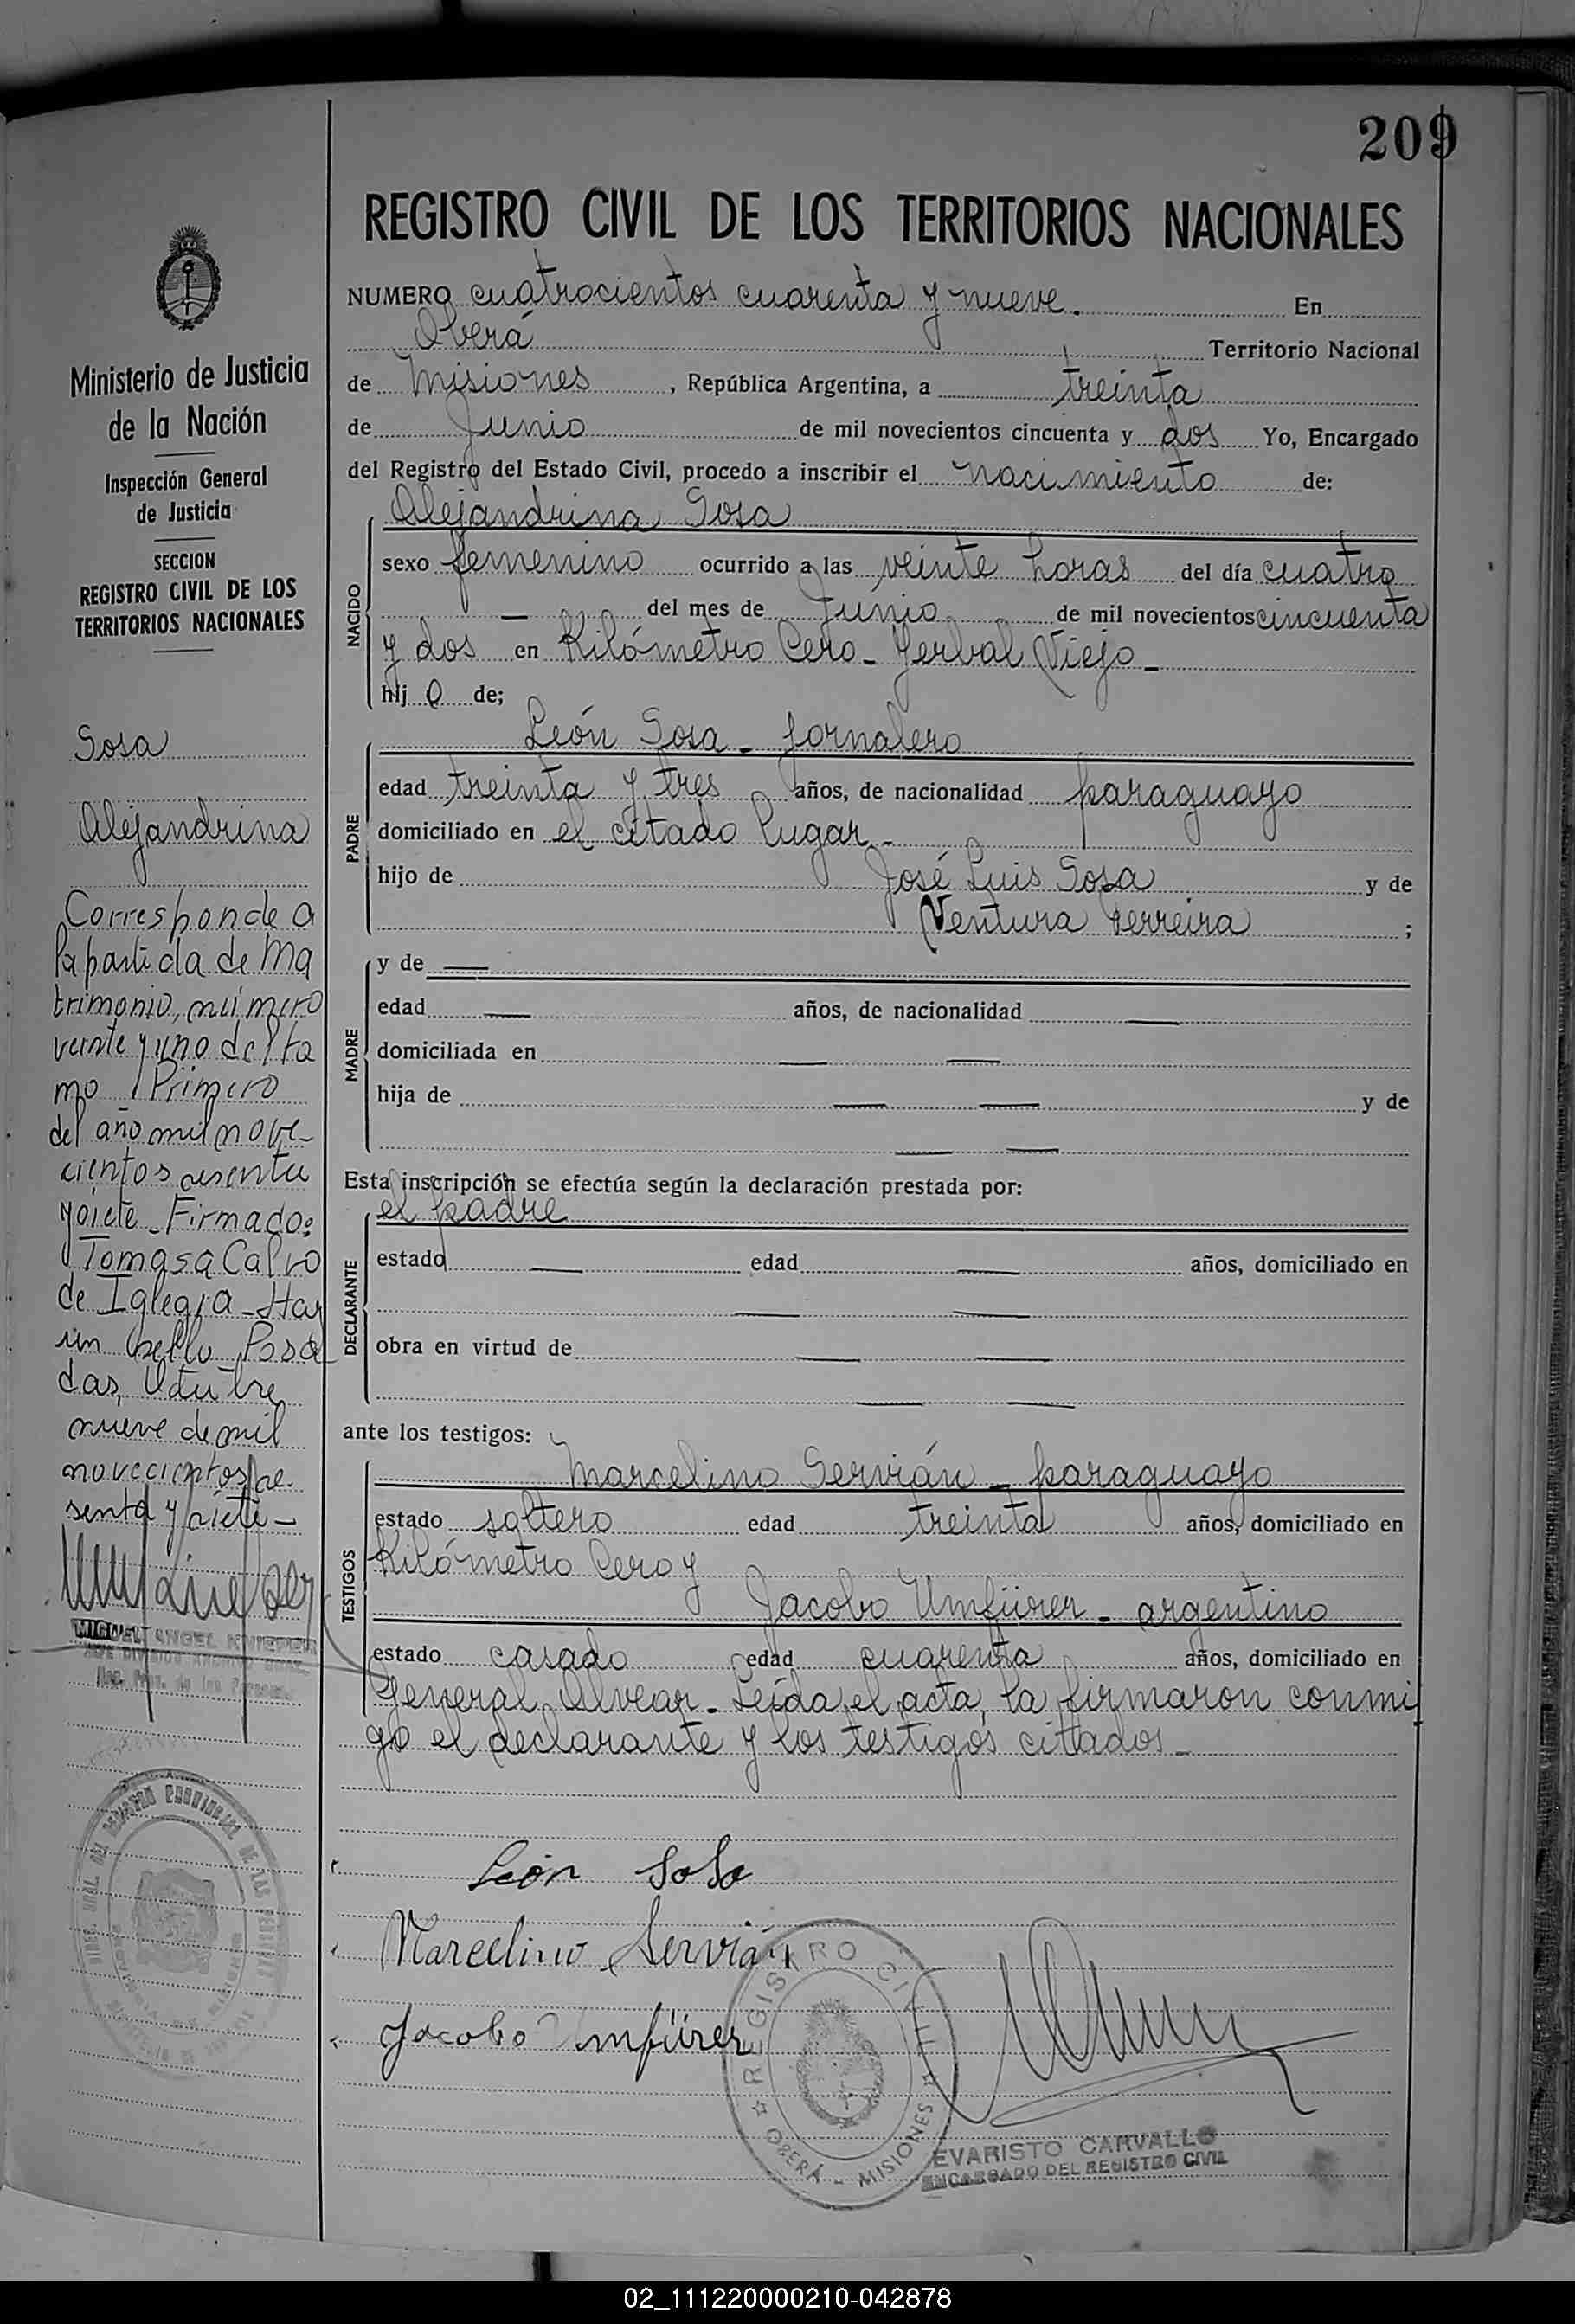 209
REGISTRO CIVIL DE LOS TERRITORIOS NACIONALES
NUMERO cuatrocientos cuarenta y nueve. En
Oberá Territorio Nacional
de Misiones, República Argentina, a treinta
de Junio de mil novecientos cincuenta y dos Yo, Encargado
del Registro del Estado Civil, procedo a inscribir el nacimiento de:
NACIDO
Alejandrina Sosa
sexo femenino ocurrido a las veinte horas del día cuatro
— del mes de Junio de mil novecientos cincuenta
y dos en Kilómetro Cero - Yerbal Viejo -
hij a de;
PADRE
León Sosa - jornalero
edad treinta y tres años, de nacionalidad paraguayo
domiciliado en el citado lugar -
hijo de José Luis Sosa y de
Ventura Ferreira ;
MADRE
y de —
edad — años, de nacionalidad —
domiciliada en — —
hija de — — y de
— —
Esta inscripción se efectúa según la declaración prestada por:
DECLARANTE
el padre
estado — edad — años, domiciliado en
— —
obra en virtud de — —
— —
ante los testigos:
TESTIGOS
Marcelino Servián - paraguayo
estado soltero edad treinta años, domiciliado en
Kilómetro Cero y
Jacobo Umfürer - argentino
estado casado edad cuarenta años, domiciliado en
General Alvear - Leída el acta, la firmaron conmi
go el declarante y los testigos citados -
León Sosa
Marcelino Servián
Jacobo Umfürer
REGISTRO CIVIL
OBERÁ - MISIONES
EVARISTO CARVALLO
ENCARGADO DEL REGISTRO CIVIL
Ministerio de Justicia
de la Nación
Inspección General
de Justicia
SECCION
REGISTRO CIVIL DE LOS
TERRITORIOS NACIONALES
Sosa
Alejandrina
Corresponde a
la partida de Ma
trimonio, número
veinte y uno del to
mo Primero
del año mil nove-
cientos sesenta
y siete - Firmado:
Tomasa Calvo
de Iglesia - Hay
un sello Posa
das, Octubre
nueve de mil
novecientos se-
senta y siete -
MIGUEL ANGEL
02_111220000210-042878